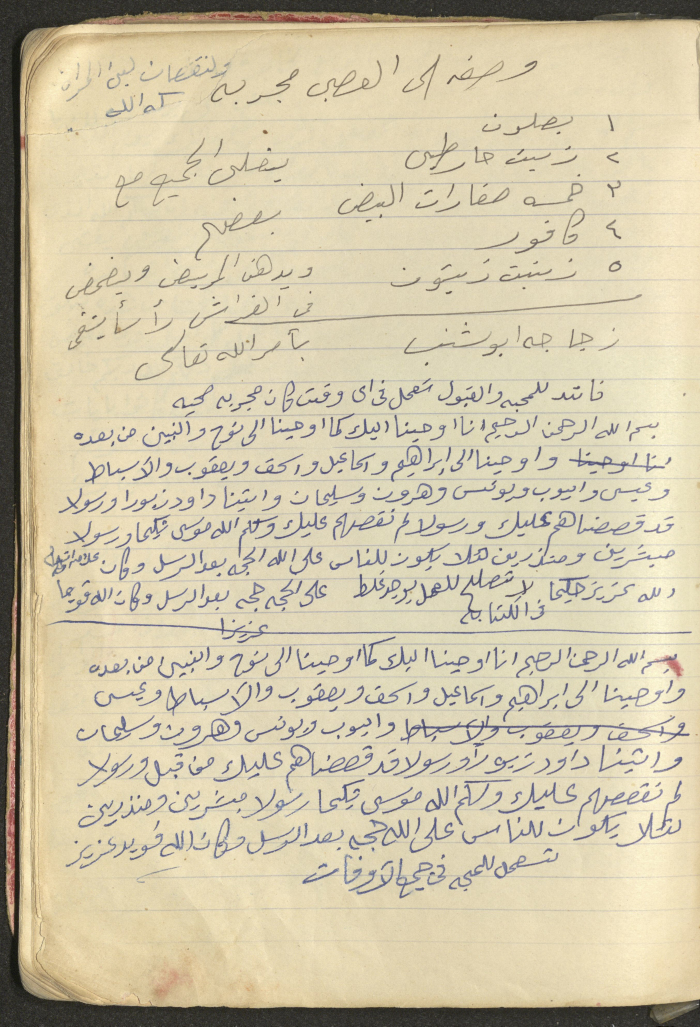 وصفه الى العصبى مجربه
ولنقصان لبن المراه
١ بصلون
٢ زيت حار طبى
ينغلى الجميع مع
٣ خمسه صفارات البيض
بعضهم
٤ كافور
٥ زيت زيتون
ويدهن المريض وينحض
فى الفراش يشفى
زجاجه ابوشنب
بأمر الله تعالى
فائده للمحبه والقبول تتعمل فى اى وقت كان مجربه صحيه
بسم الله الرحمن الرحيم انا اوحينا اليك كما اوحينا الى نوح والنبين من بعده
انا اوحينا واوحينا الى ابراهيم واسماعيل واسحق ويعقوب والاسباط
وعيسى وايوب ويونس وهرون وسليمان واتينا داود زبورا ورسولا
قد قصصناهم عليك ورسولا لم نقصصهم عليك وكلم الله موسى تكيما ورسولا
مبشرين ومنذرين لئلا يكون للناس على الله الحجه بعد الرسل وكان
الله عزيز حكيما لا تصلح للعمل يوجد غلط على الحجه حجه بعد الرسل وكان الله قويما
فى الكتابه
عزيزا
بسم الله الرحمن الرحيم انا اوحينا اليك كما اوحينا الى نوح والنبيى من بعده
واوحينا الى ابراهيم واسماعيل واسحق ويعقوب والاسباط وعيسى
واسحق ويعقوب والاسباط وايوب ويونس وهرون وسليمان
واتينا داود زبورا ورسولا قد قصصناهم عليك من قبل ورسولا
لم نقصصهم عليك وكلم الله موسى تكيما رسولا مبشرين ومنذرين
لئلا يكون للناس على الله حجه بعد الرسل وكان الله قويد عزيز
تتعمل للمحبه فى جميع الاوقات